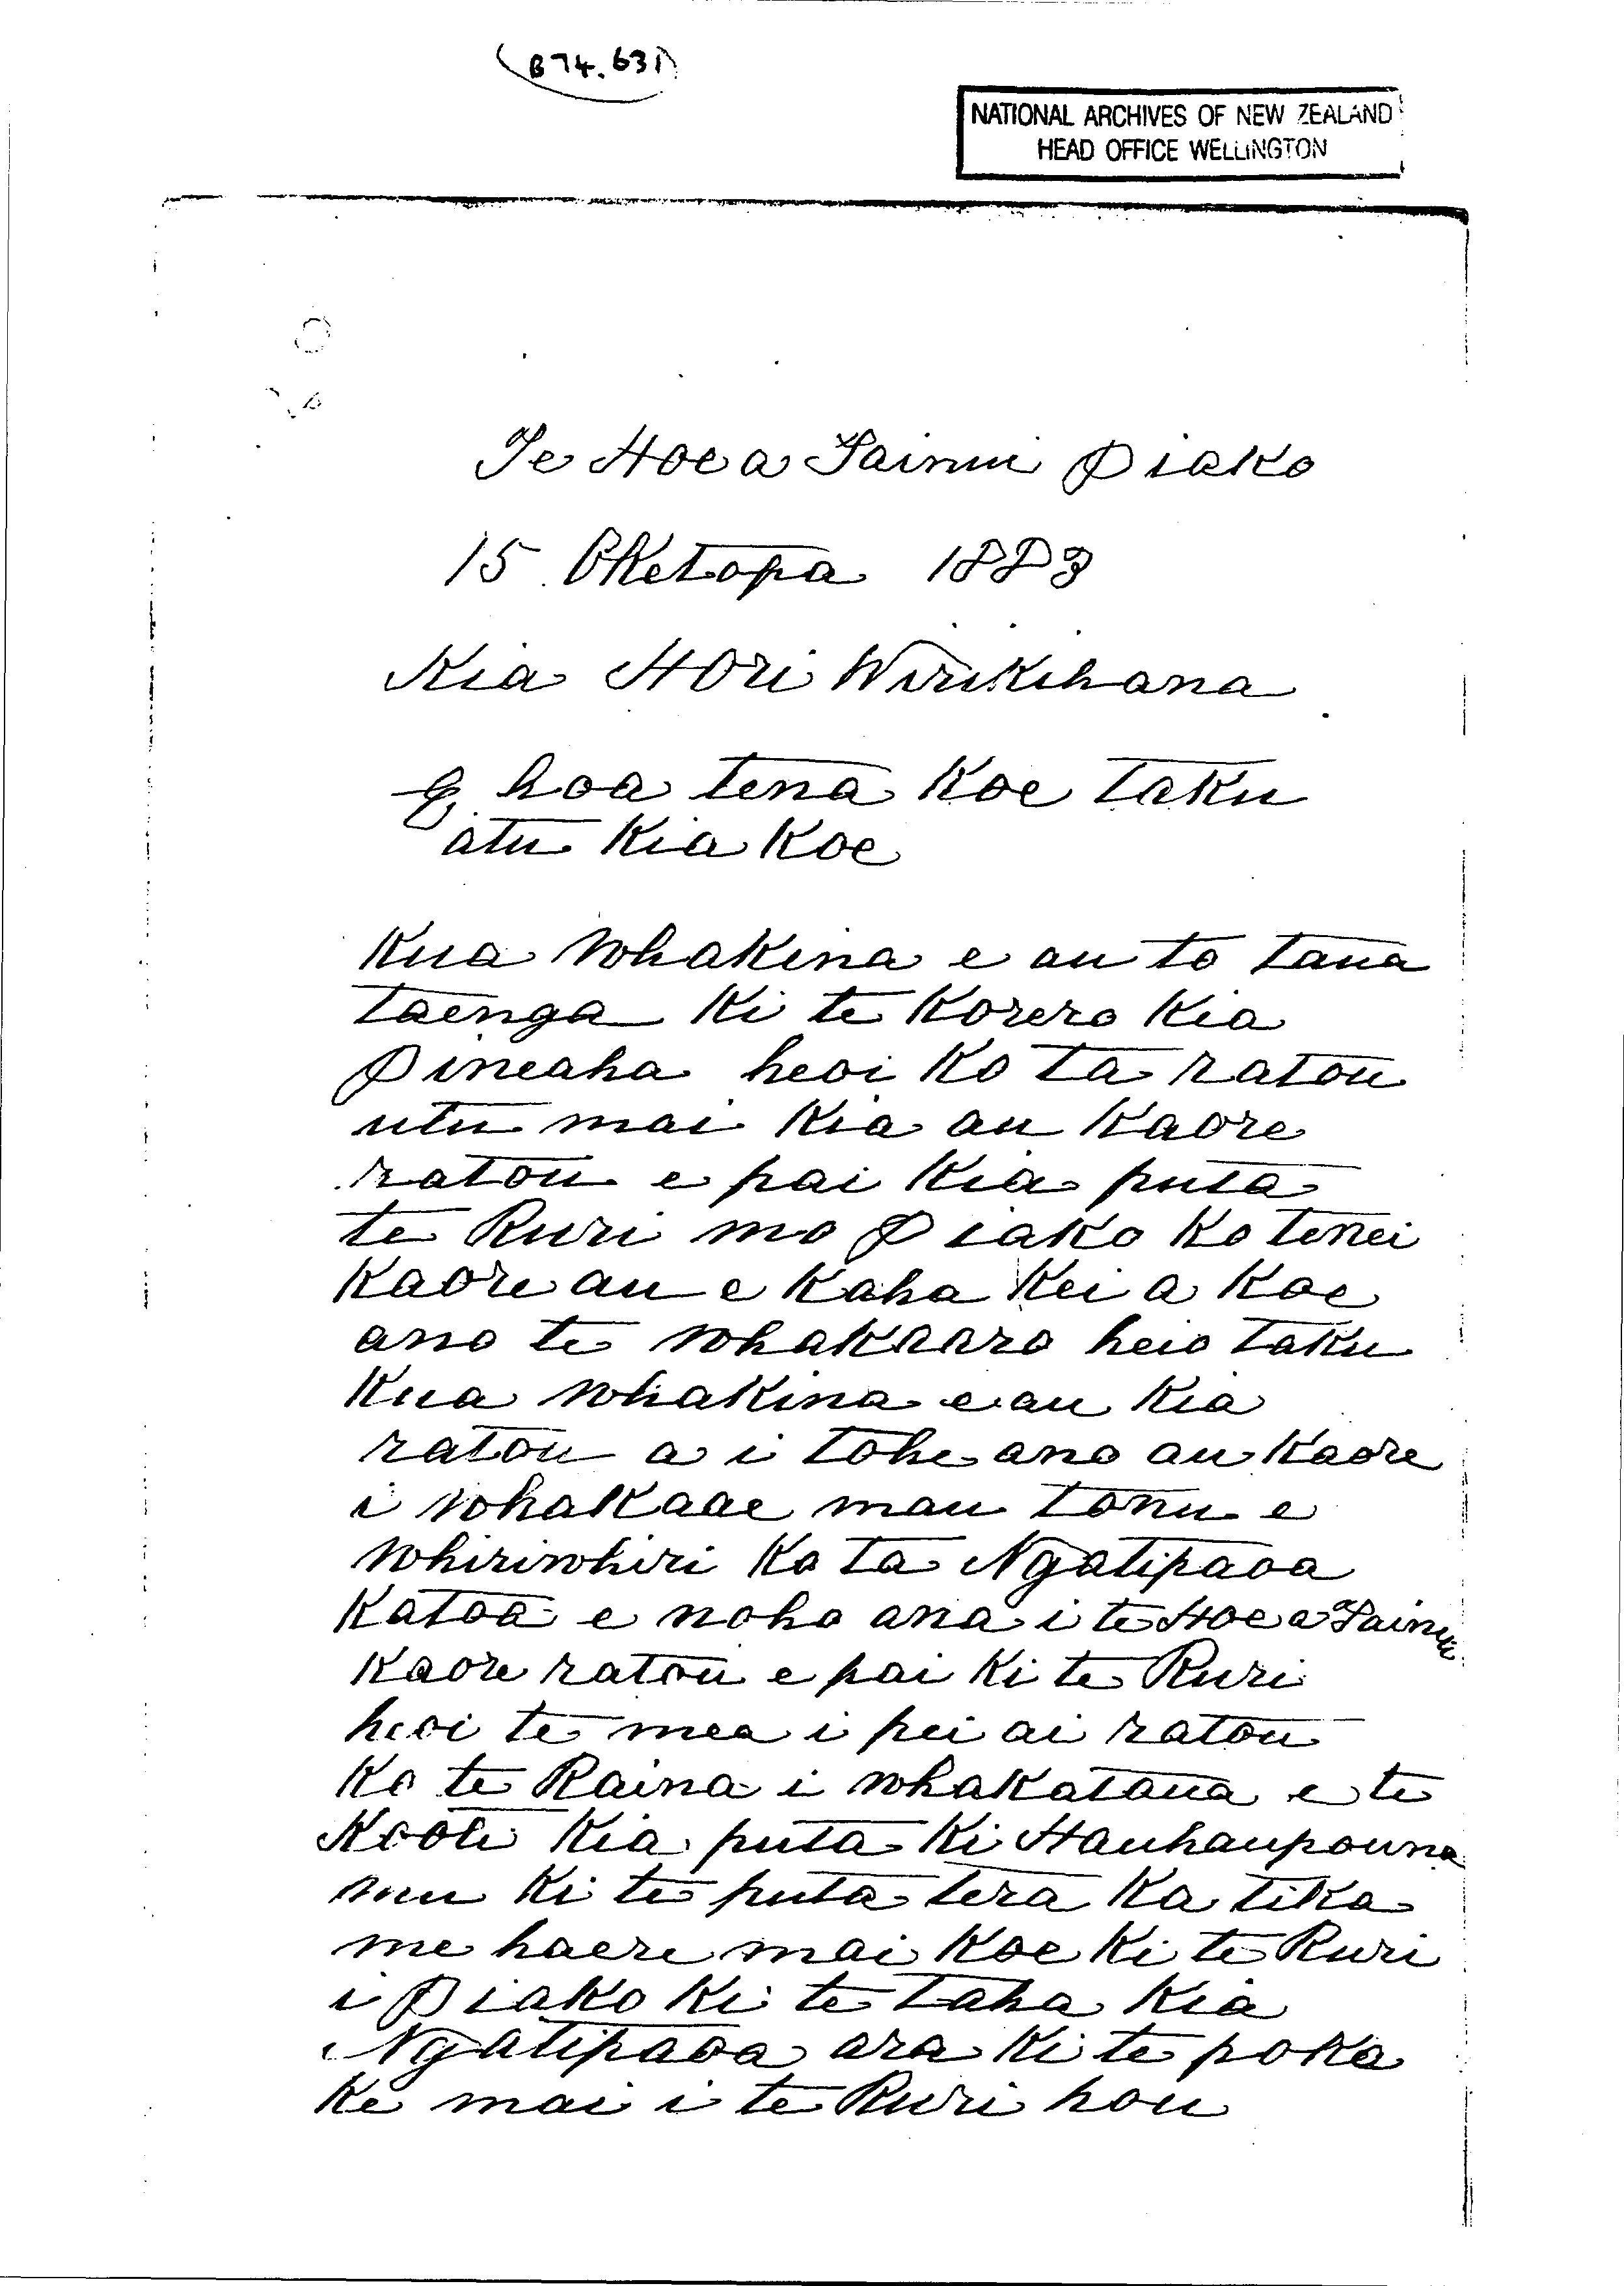 (B74.631)
NATIONAL ARCHIVES OF NEW ZEALAND
HEAD OFFICE WELLINGTON
Te Hoe a Tainui Piako
15 Oketopa 1883
Kia Hori Wirikihana
E hoa tena koe taku
atu kia koe
Kua whakina e au to taua
taenga ki te korero kia
Pineaha heoi ko ta ratou
utu mai kia au kaore
ratou e pai kia puta
te Ruri mo Piako ko tenei
kaore au e kaha kei a koe
ano te whakaaro heio taku
kua whakina e au kia
ratou a i tohe ano au kaore
i whakaae mau tonu e
whiriwhiri ko ta Ngatipaoa
katoa e noho ana i te Hoe a Tainui
kaore ratou e pai ki te Ruri
heoi te mea i pei ai ratou
ko te Raina i whakataua e te
Kooti kia puta ki Hauhaupouna
mu ki te puta tera ka tika
me haere mai koe ki te Ruri
i Piako ki te taha kia
Ngatipaoa ara ki te poka
ke mai i te Ruri hou